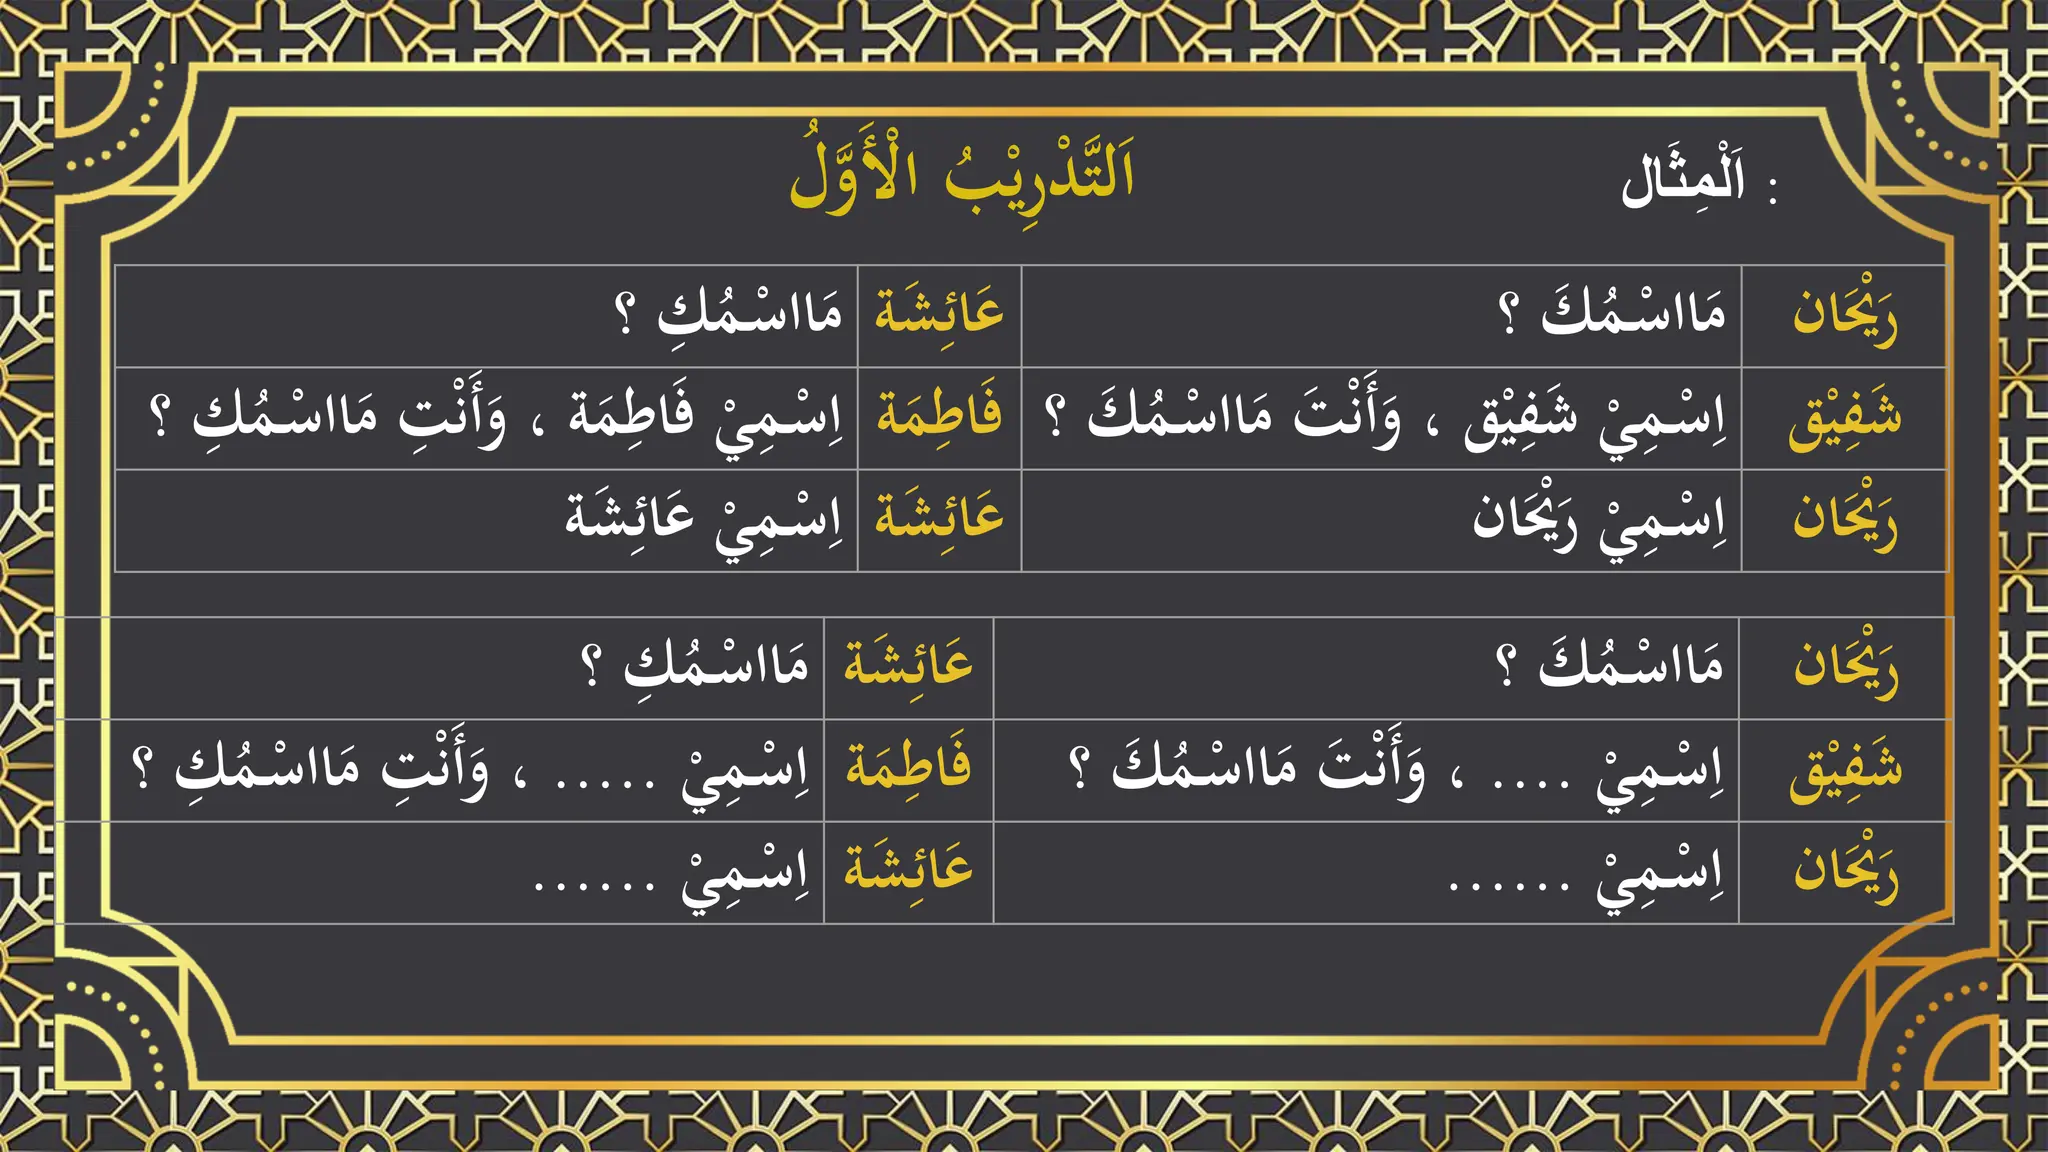 اَلتَّدْرِيْبُ الْأَوَّلُ
اَلْمِثَال :
رَيْحَان مَااسْمُكَ ؟ عَائِشَة مَااسْمُكِ ؟
شَفِيْق اِسْمِيْ شَفِيْق ، وَأَنْتَ مَااسْمُكَ ؟ فَاطِمَة اِسْمِيْ فَاطِمَة ، وَأَنْتِ مَااسْمُكِ ؟
رَيْحَان اِسْمِيْ رَيْحَان عَائِشَة اِسْمِيْ عَائِشَة
رَيْحَان مَااسْمُكَ ؟ عَائِشَة مَااسْمُكِ ؟
شَفِيْق اِسْمِيْ .... ، وَأَنْتَ مَااسْمُكَ ؟ فَاطِمَة اِسْمِيْ ..... ، وَأَنْتِ مَااسْمُكِ ؟
رَيْحَان اِسْمِيْ ...... عَائِشَة اِسْمِيْ ......